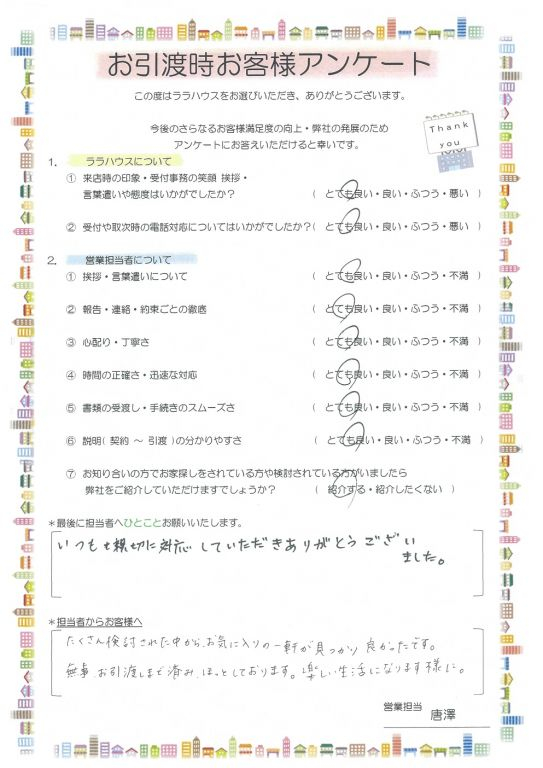 お引渡時お客様アンケート
この度はララハウスをお選びいただき、ありがとうございます。
今後のさらなるお客様満足度の向上・弊社の発展のため
アンケートにお答えいただけると幸いです。
Thank
you
1. ララハウスについて
① 来店時の印象・受付事務の笑顔 挨拶・
言葉遣いや態度はいかがでしたか? ( とても良い・良い・ふつう・悪い )
② 受付や取次時の電話対応についてはいかがでしたか? ( とても良い・良い・ふつう・悪い )
2. 営業担当者について
① 挨拶・言葉遣いについて ( とても良い・良い・ふつう・不満 )
② 報告・連絡・約束ごとの徹底 ( とても良い・良い・ふつう・不満 )
③ 心配り・丁寧さ ( とても良い・良い・ふつう・不満 )
④ 時間の正確さ・迅速な対応 ( とても良い・良い・ふつう・不満 )
⑤ 書類の受渡し・手続きのスムーズさ ( とても良い・良い・ふつう・不満 )
⑥ 説明( 契約 ～ 引渡 )の分かりやすさ ( とても良い・良い・ふつう・不満 )
⑦ お知り合いの方でお家探しをされている方や検討されている方がいましたら
弊社をご紹介していただけますでしょうか? ( 紹介する・紹介したくない )
*最後に担当者へひとことお願いいたします。
いつも親切に対応していただきありがとうござい
ました。
*担当者からお客様へ
たくさん検討された中から、お気に入りの一軒が見つかり良かったです。
無事お引渡しまで済みほっとしております。楽しい生活になります様に。
営業担当 唐澤